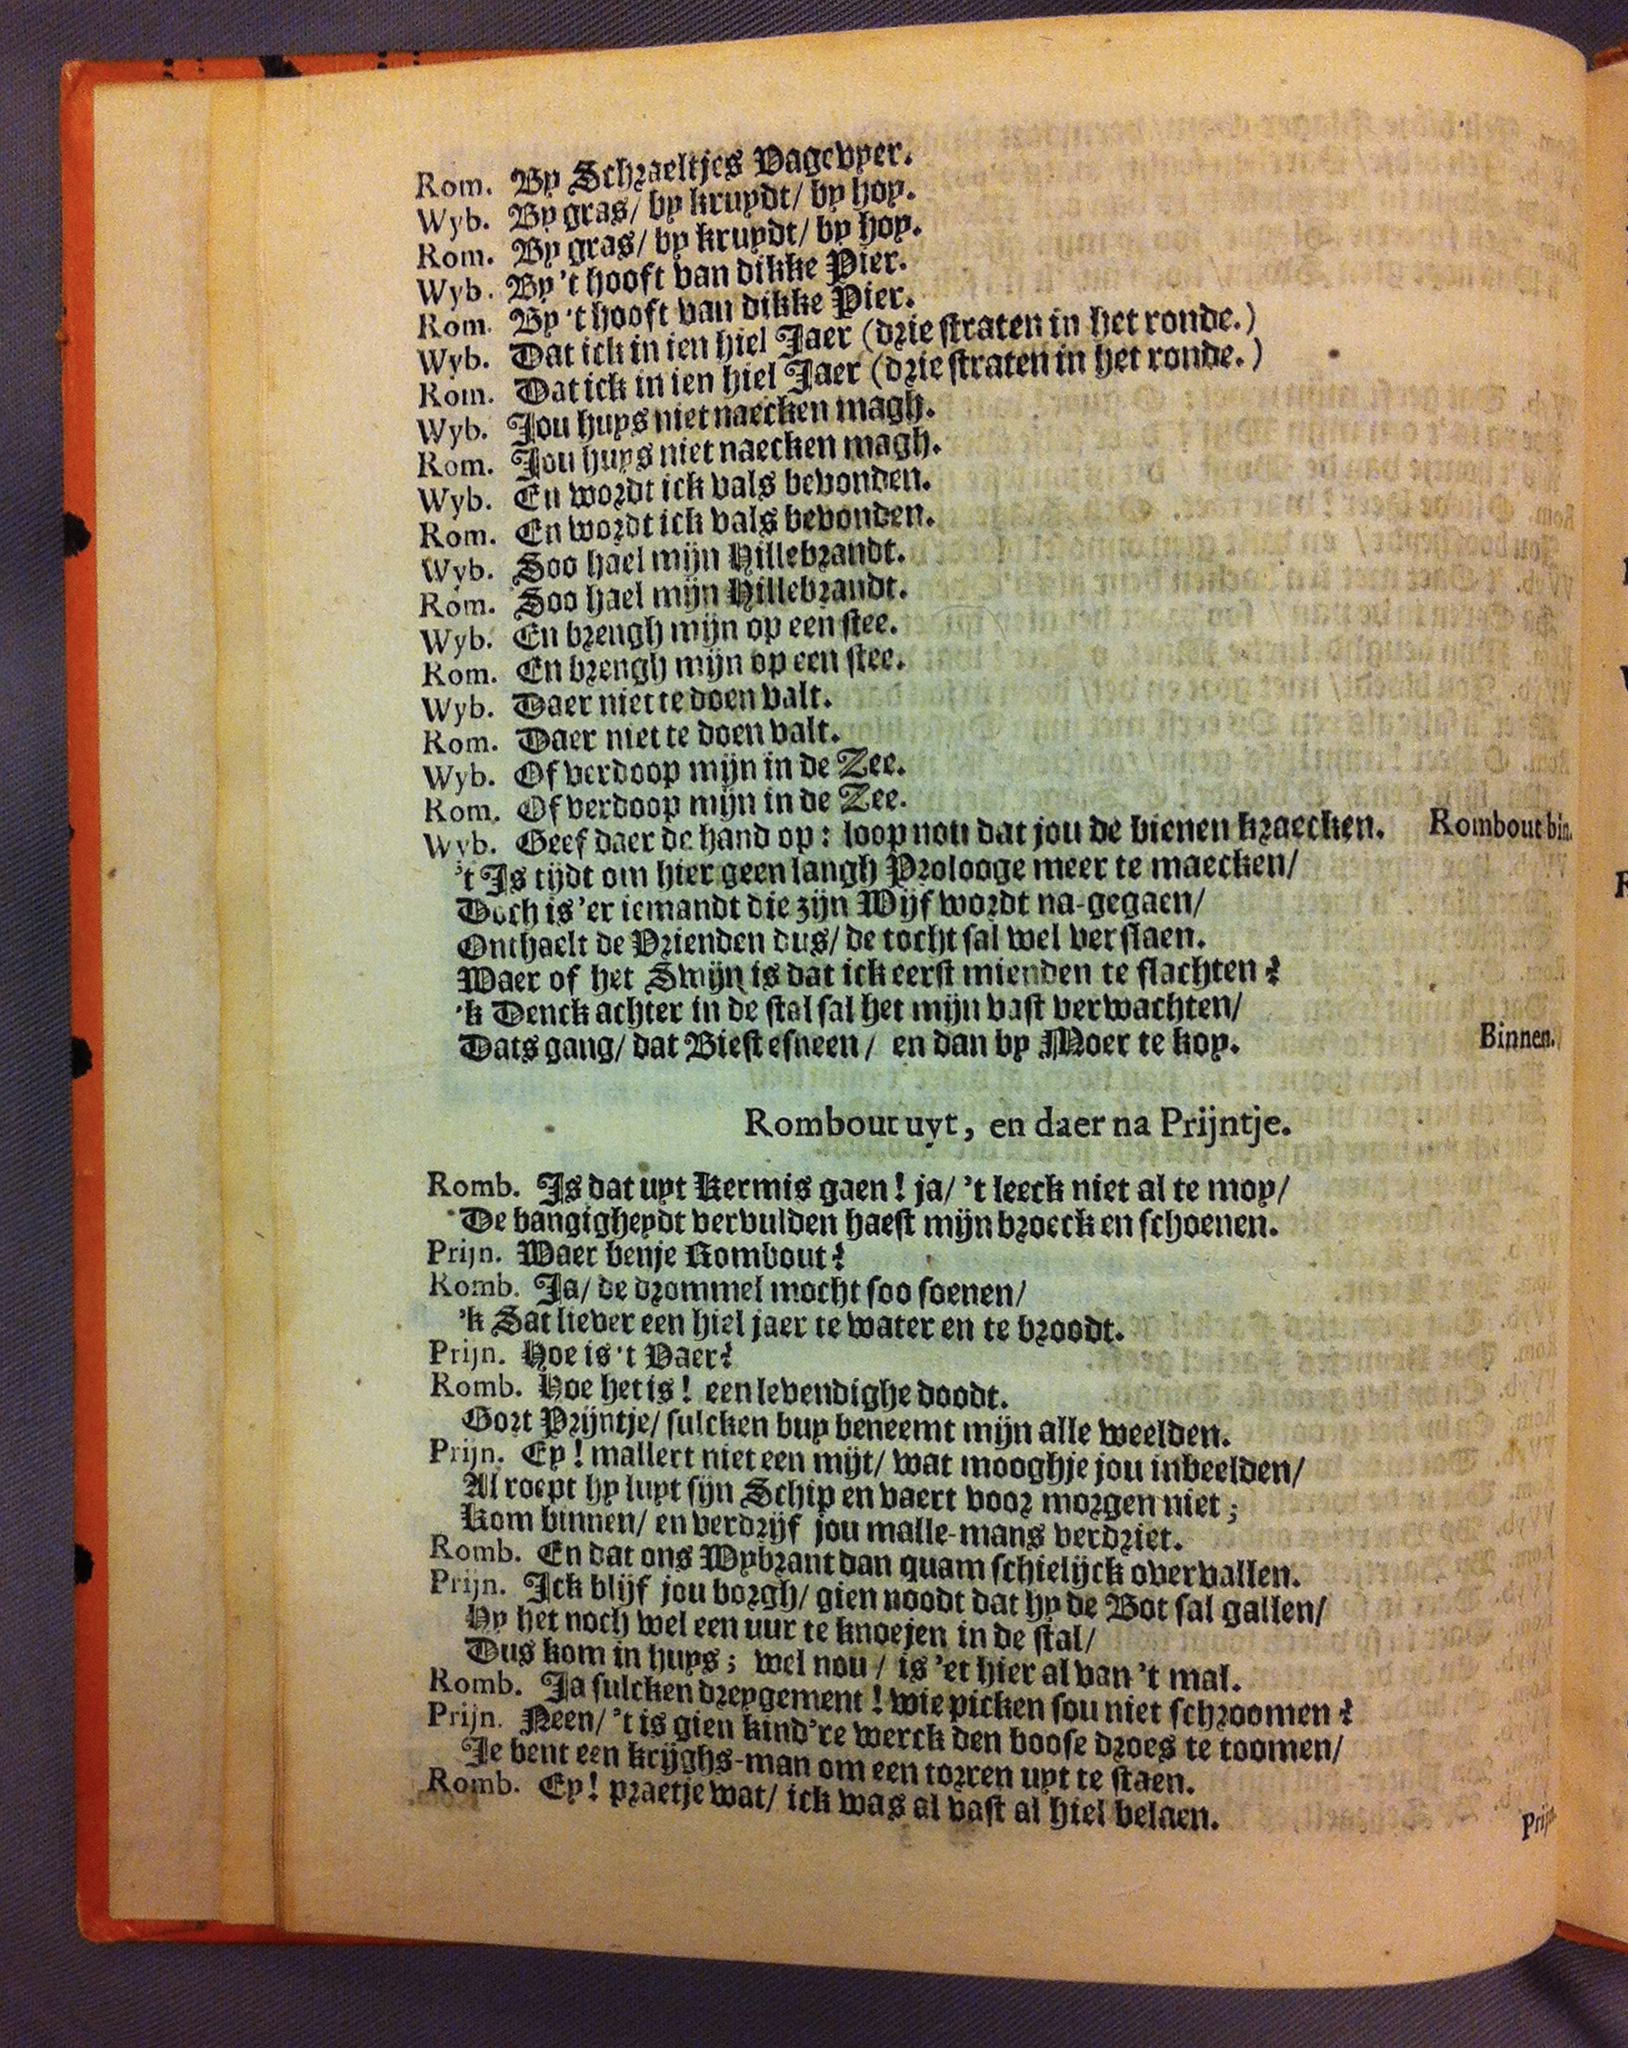 Rom. By Schraeltjes Vagevyer.
Wyb. By gras/ by kruydt/ by hoy.
Rom. By gras/ by kruydt/ by hoy.
Wyb. By 't hooft van dikke Pier.
Rom. By 't hooft van dikke Pier.
Wyb. Dat ick in ien hiel Jaer (drie straten in het ronde.)
Rom. Dat ick in ien hiel Jaer (drie straten in het ronde.)
Wyb. Jou huys niet naecken magh.
Rom. Jou huys niet naecken magh.
Wyb. En wordt ick vals bevonden.
Rom. En wordt ick vals bevonden.
Wyb. Soo hael mijn Hillebrandt.
Rom. Soo hael mijn Hillebrandt.
Wyb. En brengh mijn op een stee.
Rom. En brengh mijn op een stee.
Wyb. Daer niet te doen valt.
Rom. Daer niet te doen valt.
Wyb. Of verdoop mijn in de Zee.
Rom. Of verdoop mijn in de Zee.
Wyb. Geef daer de hand op: loop nou dat jou de bienen kraecken. Rombout bin.
't Is tijdt om hier geen langh Prolooge meer te maecken/
Doch is 'er iemandt die zijn Wijf wordt na-gegaen/
Onthaelt de Vrienden dus/ de tocht sal wel verslaen.
Waer of het Swijn is dat ick eerst mienden te slachten?
'k Denck achter in de stal sal het mijn vast verwachten/
Dats gang/ dat Biest esneen/ en dan by Moer te koy. Binnen.
Rombout uyt, en daer na Prijntje.
Romb. Is dat uyt Kermis gaen! ja/ 't leeck niet al te moy/
De bangigheydt vervulden haest mijn broeck en schoenen.
Prijn. Waer benje Rombout?
Romb. Ja/ de drommel mocht soo soenen/
'k Sat liever een hiel jaer te water en te broodt.
Prijn. Hoe is 't Vaer?
Romb. Hoe het is! een levendighe doodt.
Gort Prijntje/ sulcken buy beneemt mijn alle weelden.
Prijn. Ey! mallert niet een mijt/ wat mooghje jou inbeelden/
Al roept hy luyt sijn Schip en vaert voor morgen niet;
Kom binnen/ en verdrijf jou malle-mans verdriet.
Romb. En dat ons Wybrant dan quam schielijck overvallen.
Prijn. Ick blijf jou borgh/ gien noodt dat hy de Bot sal gallen/
Hy het noch wel een uur te knoejen in de stal/
Dus kom in huys; wel nou/ is 'et hier al van 't mal.
Romb. Ja sulcken dreygement! wie picken sou niet schroomen?
Prijn. Neen/ 't is gien kind're werck den boose droes te toomen/
Je bent een krijghs-man om een torren uyt te staen.
Romb. Ey! praetje wat/ ick was al vast al hiel belaen.
Prijn.